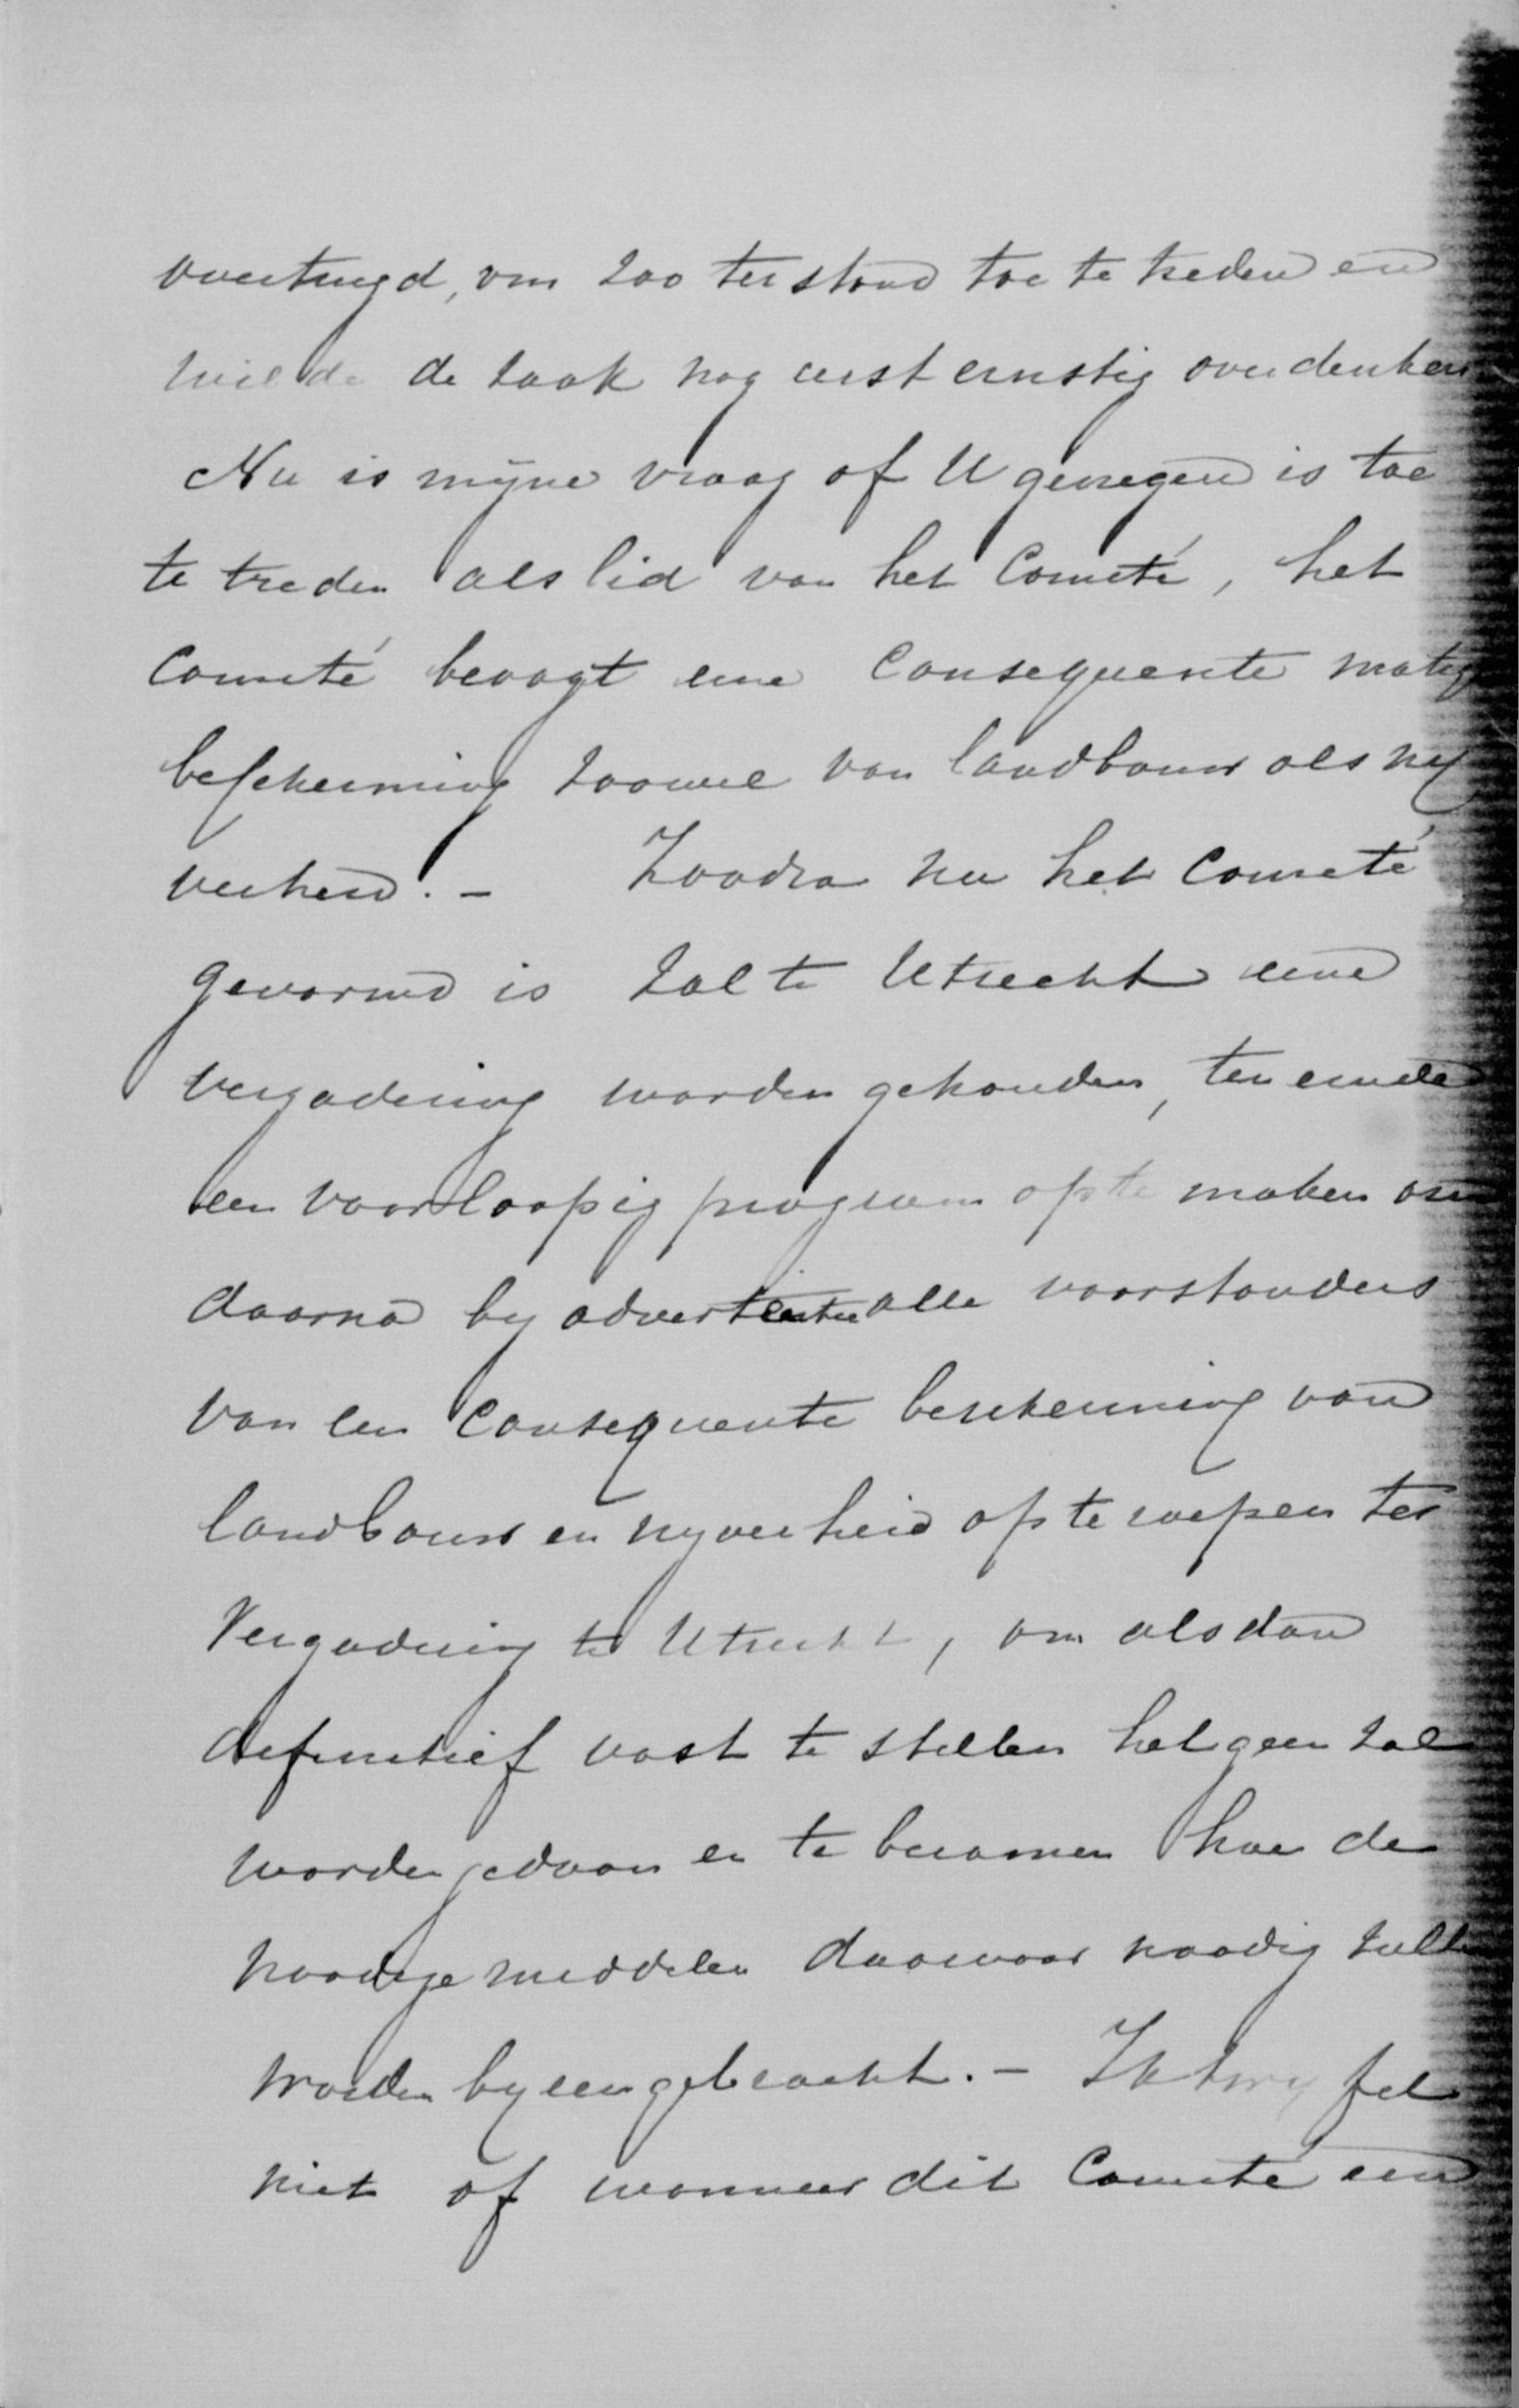 overtuigd, om zoo terstond toe te treden en
wilde de zaak nog eerst ernstig overdenken
Nu is mijne vraag of U genegen is toe
te treden als lid van het Comité, het
Comité beoogt eene Consequente matige
bescherming zoowel van landbouw als nij
verheid. - Zoodra nu het Comité
gevormd is zal te Utrecht eene
vergadering worden gehouden, ten einde
een voorloopig program op te maken om
daarna by advertentie alle voorstanders
van een Consequente bescherming van
landbouw en nyverheid op te roepen ter
Vergadering te Utrecht, om alsdan
definitief vast te stellen hetgeen zal
worden gedaan en te beramen hoe de
noodige middelen daarvoor noodig zullen
worden byeengebracht. - Ik twyfel
niet of wanneer dit Comité een